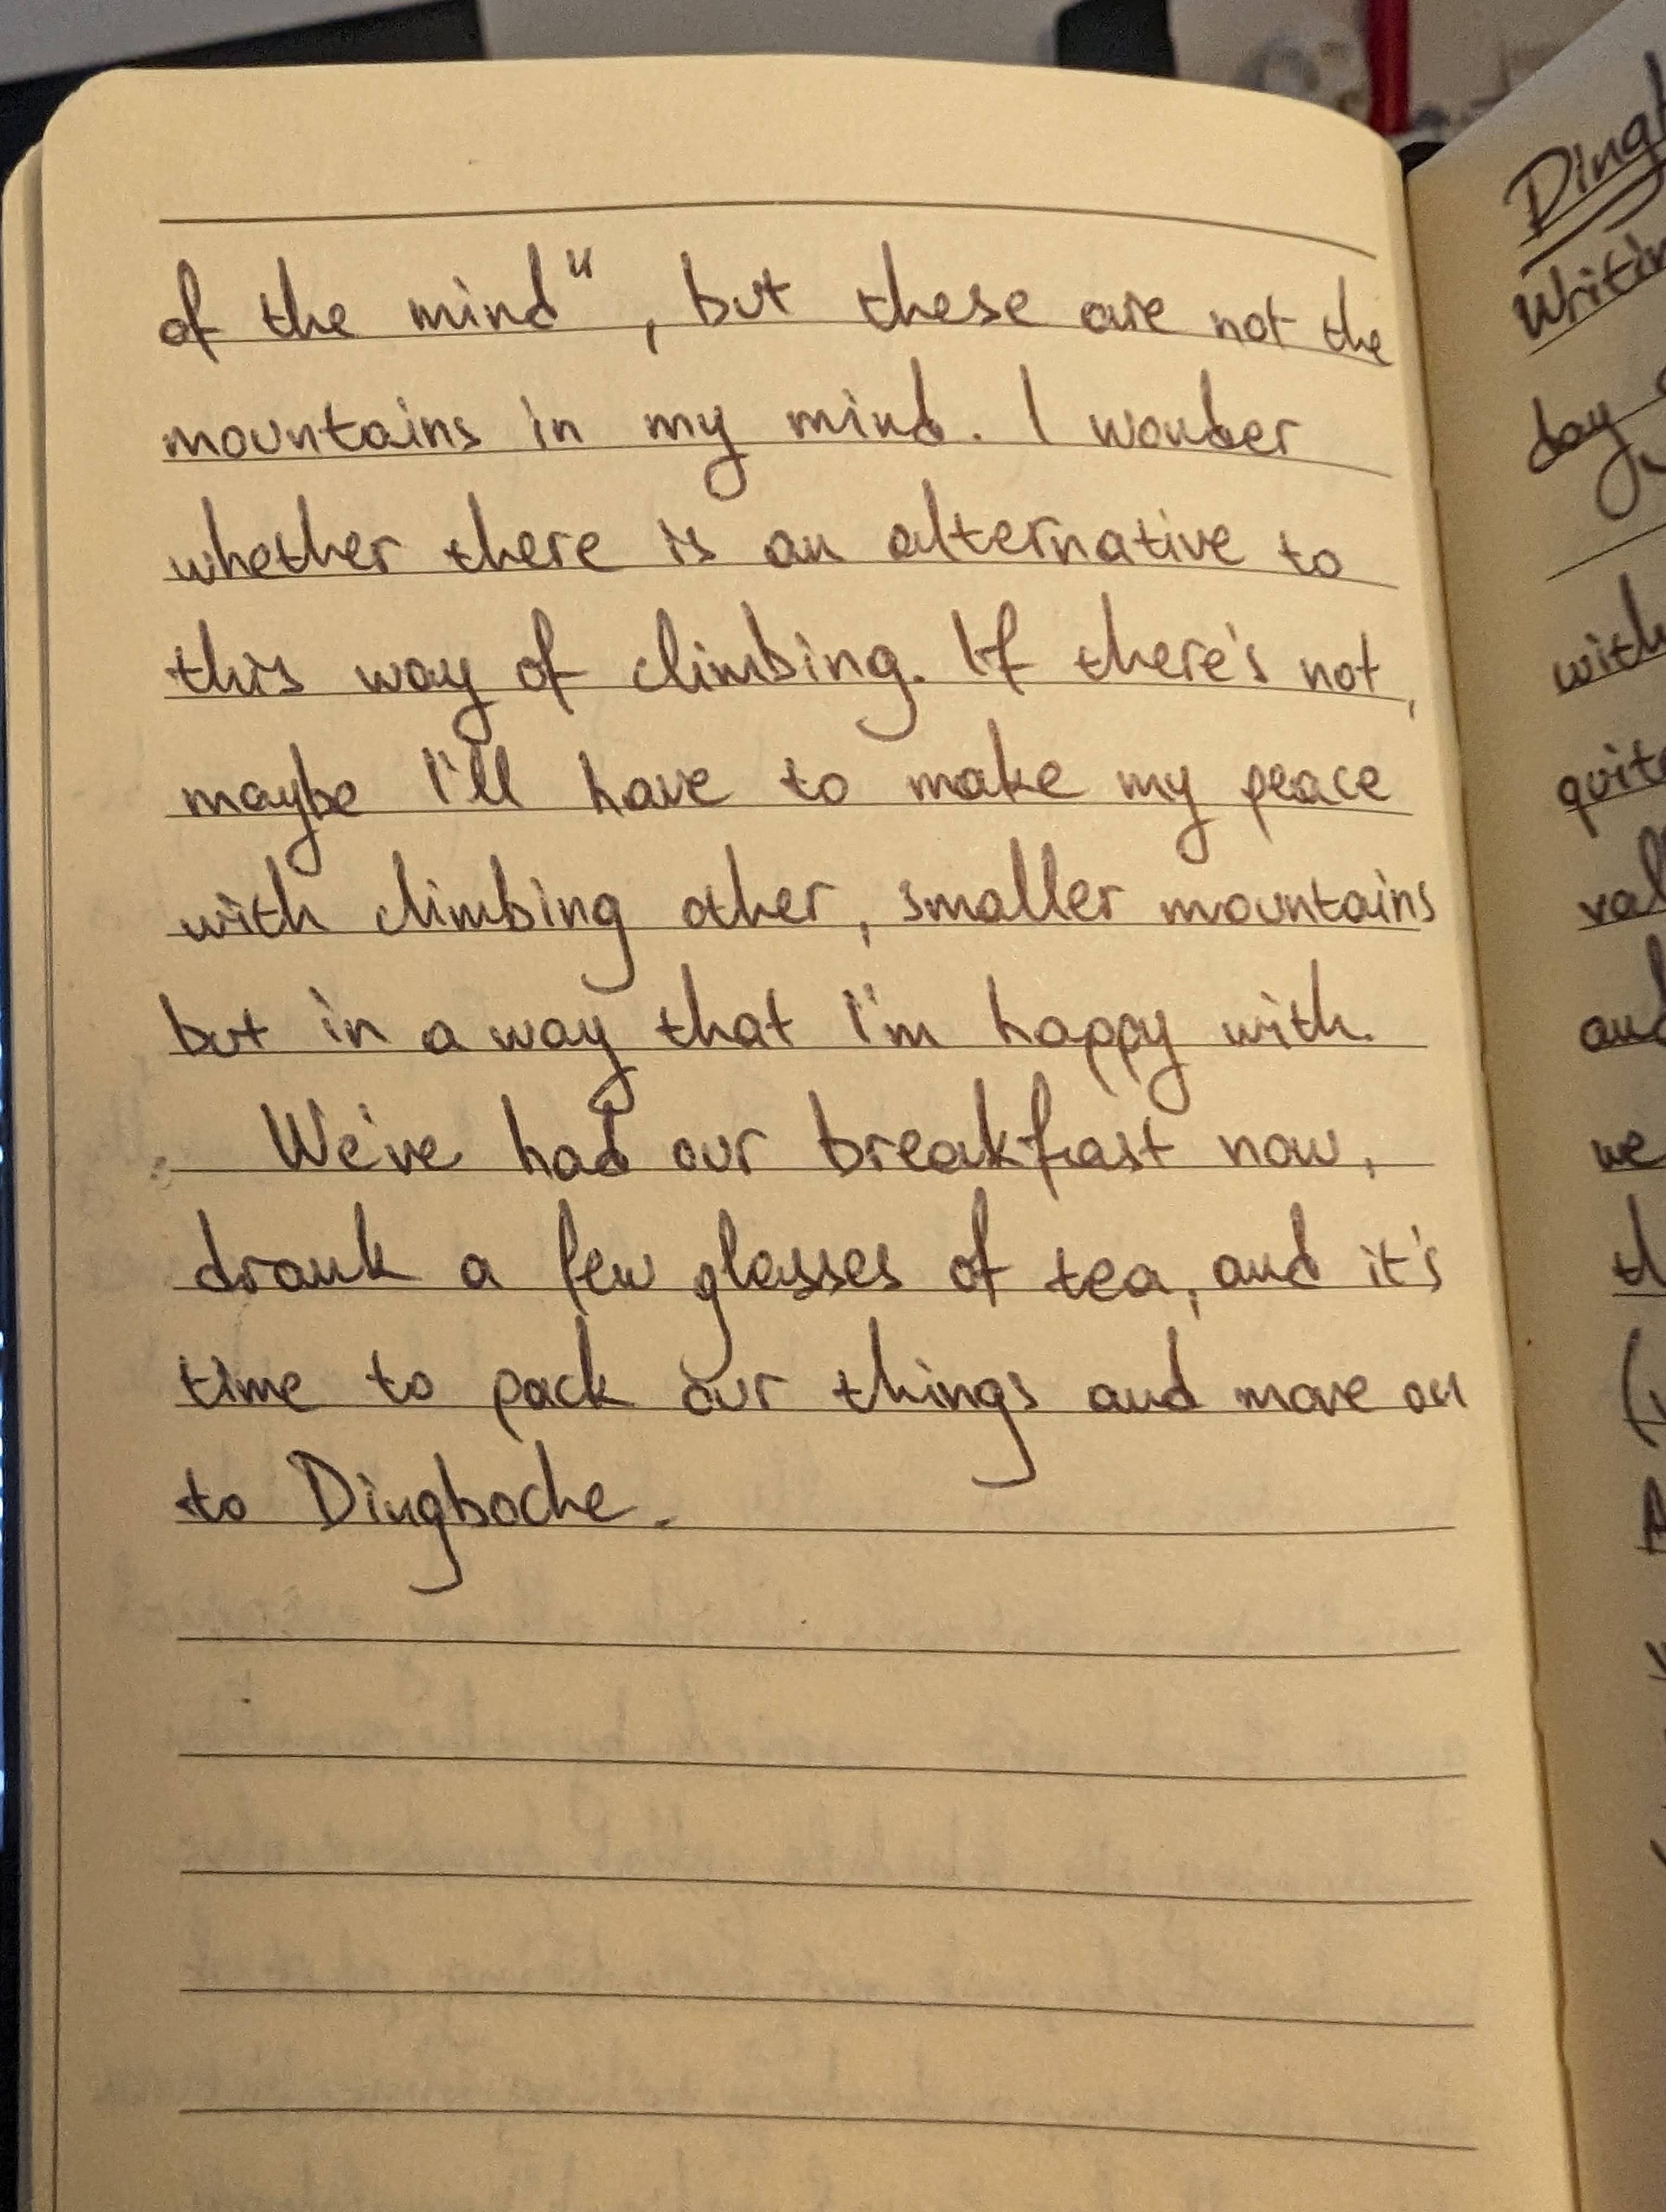 of the mind", but these are not the
mountains in my mind. I wonder
whether there is an alternative to
this way of climbing. If there's not,
maybe I'll have to make my peace
with climbing other, smaller mountains
but in a way that I'm happy with.
We've had our breakfast now,
drank a few glasses of tea, and it's
time to pack our things and move on
to Dingboche.
day
with
and
we